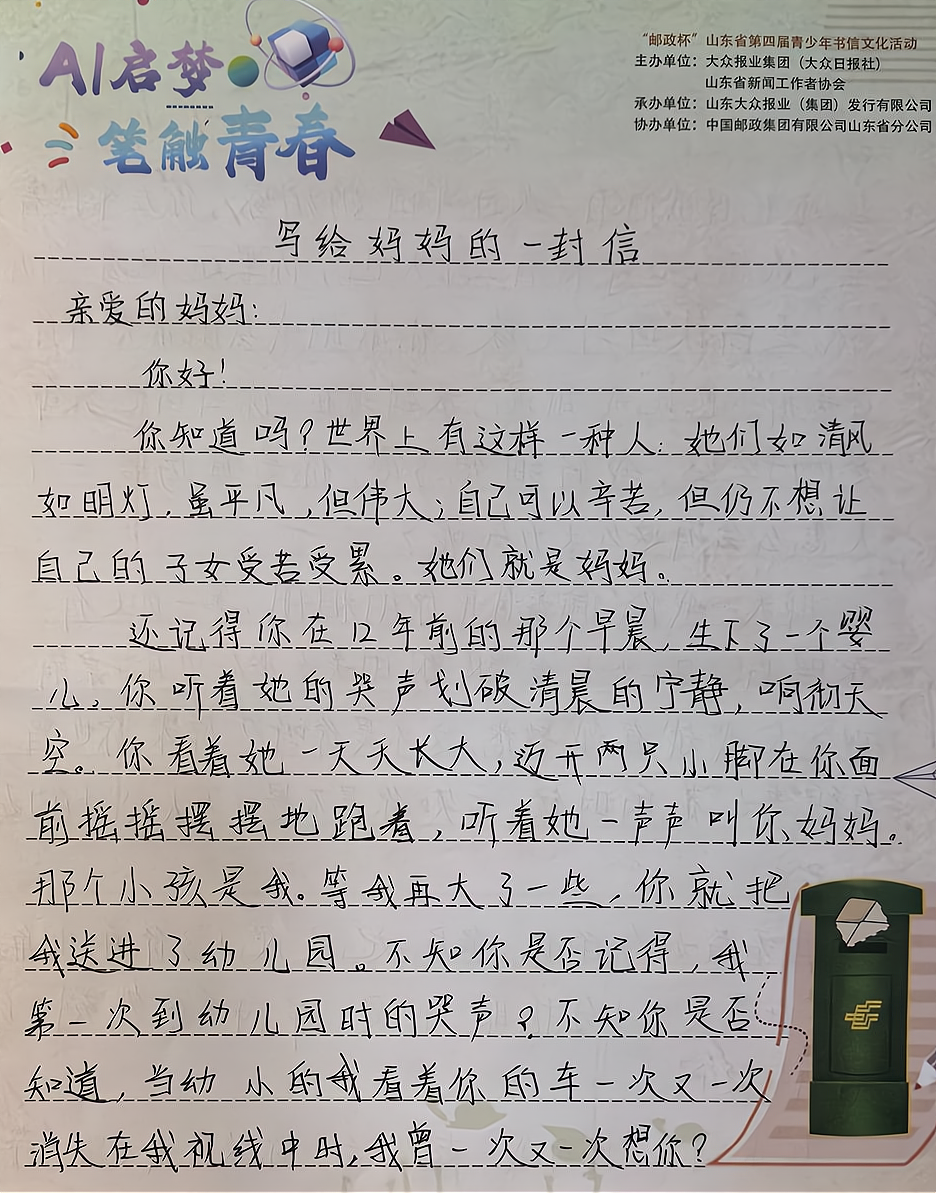 AI启梦
笔触青春
“邮政杯”山东省第四届青少年书信文化活动
主办单位：大众报业集团（大众日报社）
山东省新闻工作者协会
承办单位：山东大众报业（集团）发行有限公司
协办单位：中国邮政集团有限公司山东省分公司
写给妈妈的一封信
亲爱的妈妈：
你好！
你知道吗？世界上有这样一种人：她们如清风
如明灯，虽平凡，但伟大；自己可以辛苦，但仍不想让
自己的子女受苦受累。她们就是妈妈。
还记得你在12年前的那个早晨，生下了一个婴
儿。你听着她的哭声划破清晨的宁静，响彻天
空。你看着她一天天长大，迈开两只小脚在你面
前摇摇摆摆地跑着，听着她一声声叫你妈妈。
那个小孩是我。等我再大了一些，你就把
我送进了幼儿园。不知你是否记得，我
第一次到幼儿园时的哭声？不知你是否
知道，当幼小的我看着你的车一次又一次
消失在我视线中时，我曾一次又一次想你？